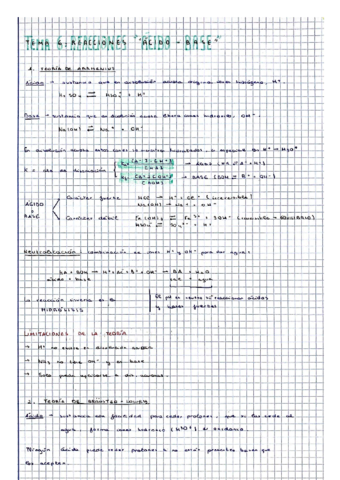 TEMA 6: REACCIONES "ÁCIDO - BASE"
1. TEORÍA DE ARRHENIUS
Ácido → sustancia que en disolución acuosa origina iones hidrógeno, H⁺
H₂SO₄ ⇌ HSO₄⁻ + H⁺
Base → sustancia que en disolución acuosa libera iones hidroxilo, OH⁻.
Na(OH) ⇌ Na⁺ + OH⁻
En disolución acuosa estos iones se encuentran H⁺ → H₃O⁺
K = cte de disociación
ÁCIDO
o
BASE
Carácter fuerte HCl → H⁺ + Cl⁻ (irreversible)
Na(OH) → Na⁺ + OH⁻
Carácter débil
NEUTRALIZACIÓN: combinación de iones H⁺ y OH⁻ para dar agua:
HA + BOH → H⁺ + A⁻ + B⁺ + OH⁻ → BA + H₂O
ácido + base sal + agua
La reacción inversa es la
HIDRÓLISIS
El pH es neutro si reaccionan ácidos
y bases fuertes
LIMITACIONES DE LA TEORÍA
→ H⁺ no existe en disolución acuosa
→ NH₃ no tiene OH⁻ y es base
→ Solo puede aplicarse a dis. acuosas.
2. TEORÍA DE BRÖNSTED - LOWRY
Ácido → sustancia con facilidad para ceder protones, que si los cede al
agua, forma iones hidronio (H₃O⁺) o oxidanio.
Ningún ácido puede ceder protones si no están presentes bases que
los acepten.